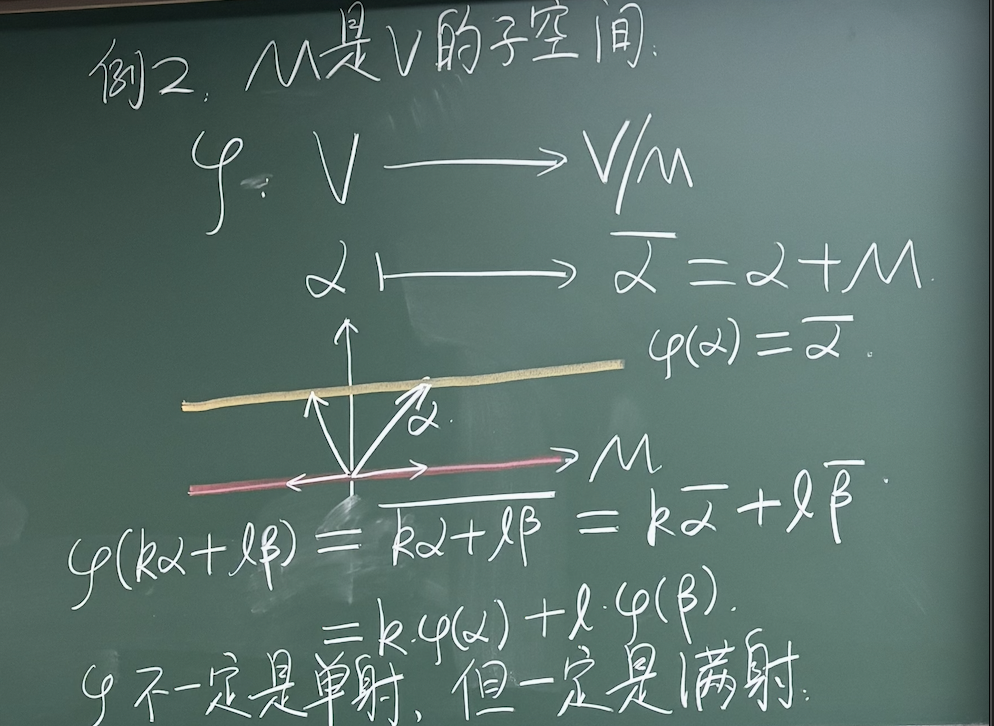 例2. M是V的子空间.
φ: V ⟶ V/M
α ⟼ \overline{α} = α + M.
φ(α) = \overline{α}.
α.
M
φ(kα+lβ) = \overline{kα+lβ} = k\overline{α} + l\overline{β}.
= k·φ(α) + l·φ(β).
φ不一定是单射, 但一定是满射.